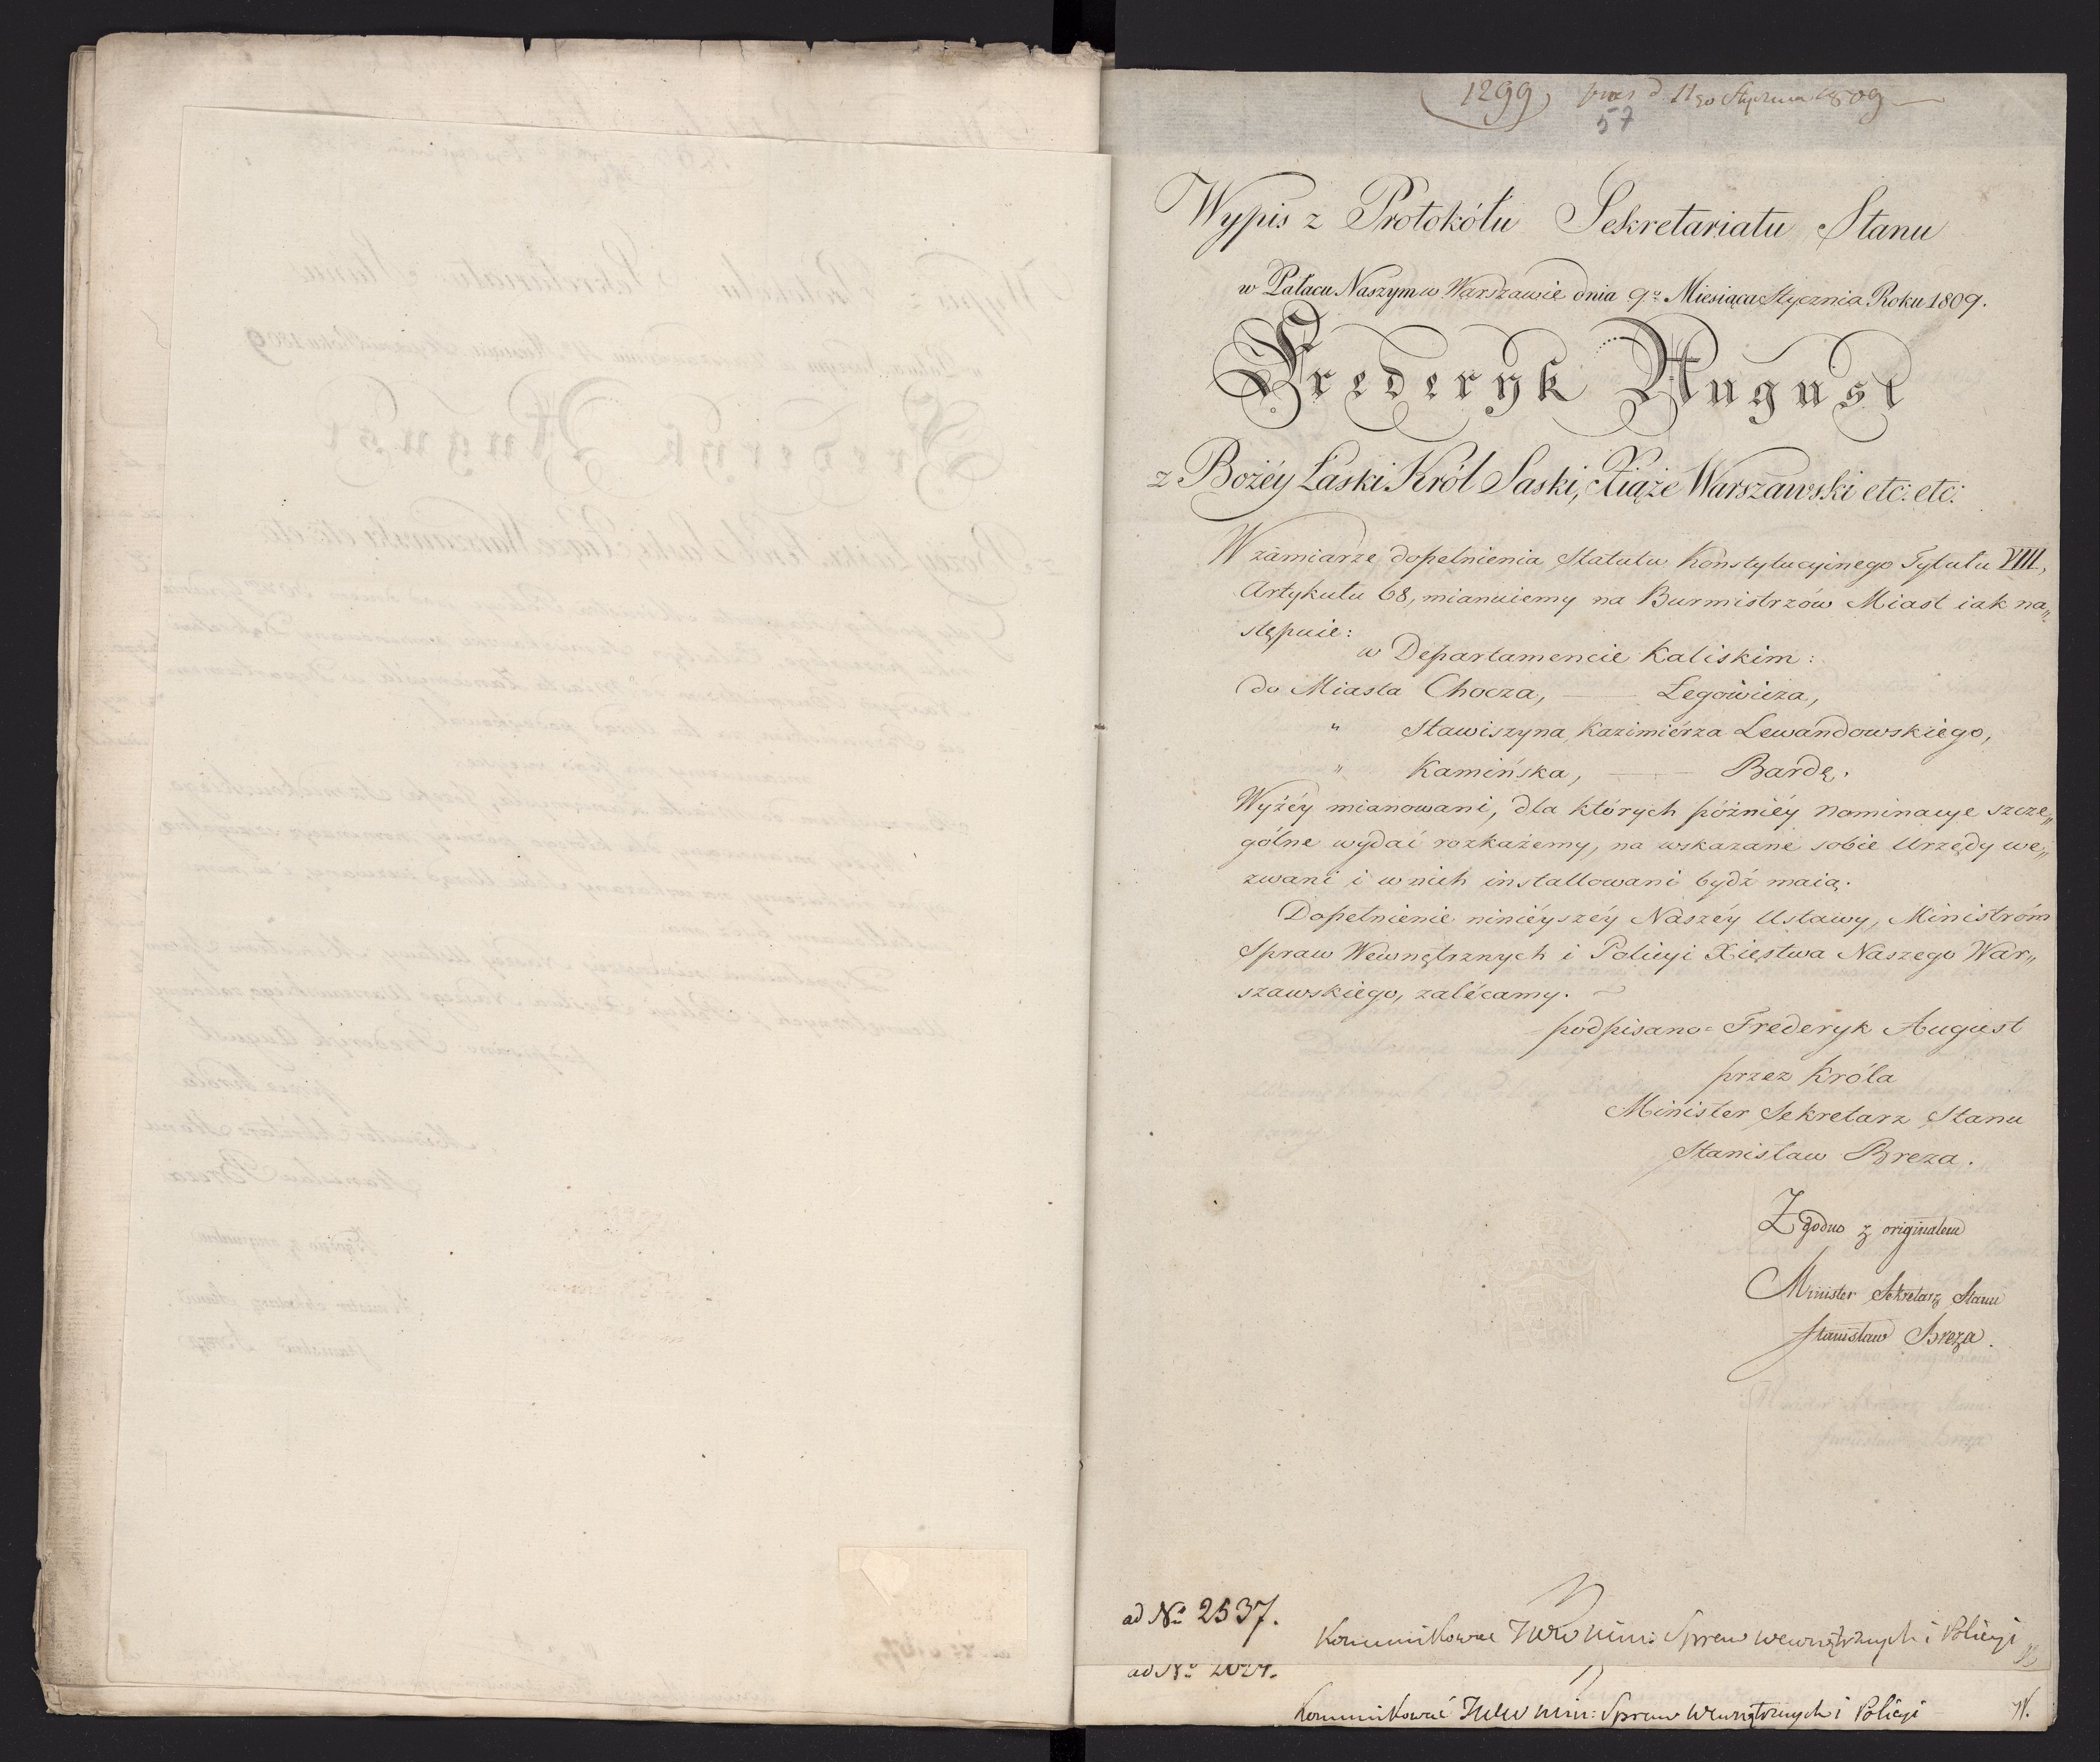 1299 pres d. 11go Stycznia 1809
57
Wypis z Protokółu Sekretariatu Stanu
w Pałacu Naszym w Warszawie dnia 9go Miesiąca Stycznia Roku 1809.
Frederyk August
z Bożéy Łaski Król Saski, Xiąże Warszawski etc: etc:
W zamiarze dopełnienia Statutu Konstytucyinego Tytułu VIII,
Artykułu 68, mianuiemy na Burmistrzów Miast iak na„
stępuie:
w Departamencie Kaliskim:
do Miasta Chocza, —— Legowicza,
" Stawiszyna, Kazimiérza Lewandowskiego,
" Kamińska, —— Bardę.
Wyżéy mianowani, dla których późniéy nominacye szcze„
gólne wydać rozkażemy, na wskazane sobie Urzędy we„
zwani i w nich installowani bydź maią.
Dopełnienie ninieyszéy Naszéy Ustawy, Ministróm
Spraw Wewnętrznych i Policyi Xięstwa Naszego War„
szawskiego, zalécamy.
podpisano= Frederyk August
przez Króla
Minister Sekretarz Stanu
Stanisław Breza.
Zgodno z originałem
Minister Sekretarz Stanu
Stanisław Breza.
ad No 2537.
Kommunikować JWW Minn: Spraw wewnętrznych i Policyi
ad No
Kommunikować JWW Min: Spraw Wewnętrznych i Policyi